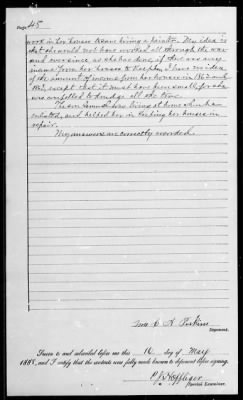 Page 45
work in her house & own hiring a painter. My idea is
that she would not have worked all through the war
and ever since as she has done, if she was any
means from her houses to keep her. I have no idea
of the amount of income from her houses in 1862 and
1863, except that it must have been small, for she
was compelled to drudge all the time.
The son Samuel was living at home when he
enlisted, and helped her in keeping her houses in
repair.
My answers are correctly recorded.
Mrs C. A. Perkins
Deponent.
Sworn to and subscribed before me this 16 day of May
1885, and I certify that the contents were fully made known to deponent before signing.
Special Examiner.